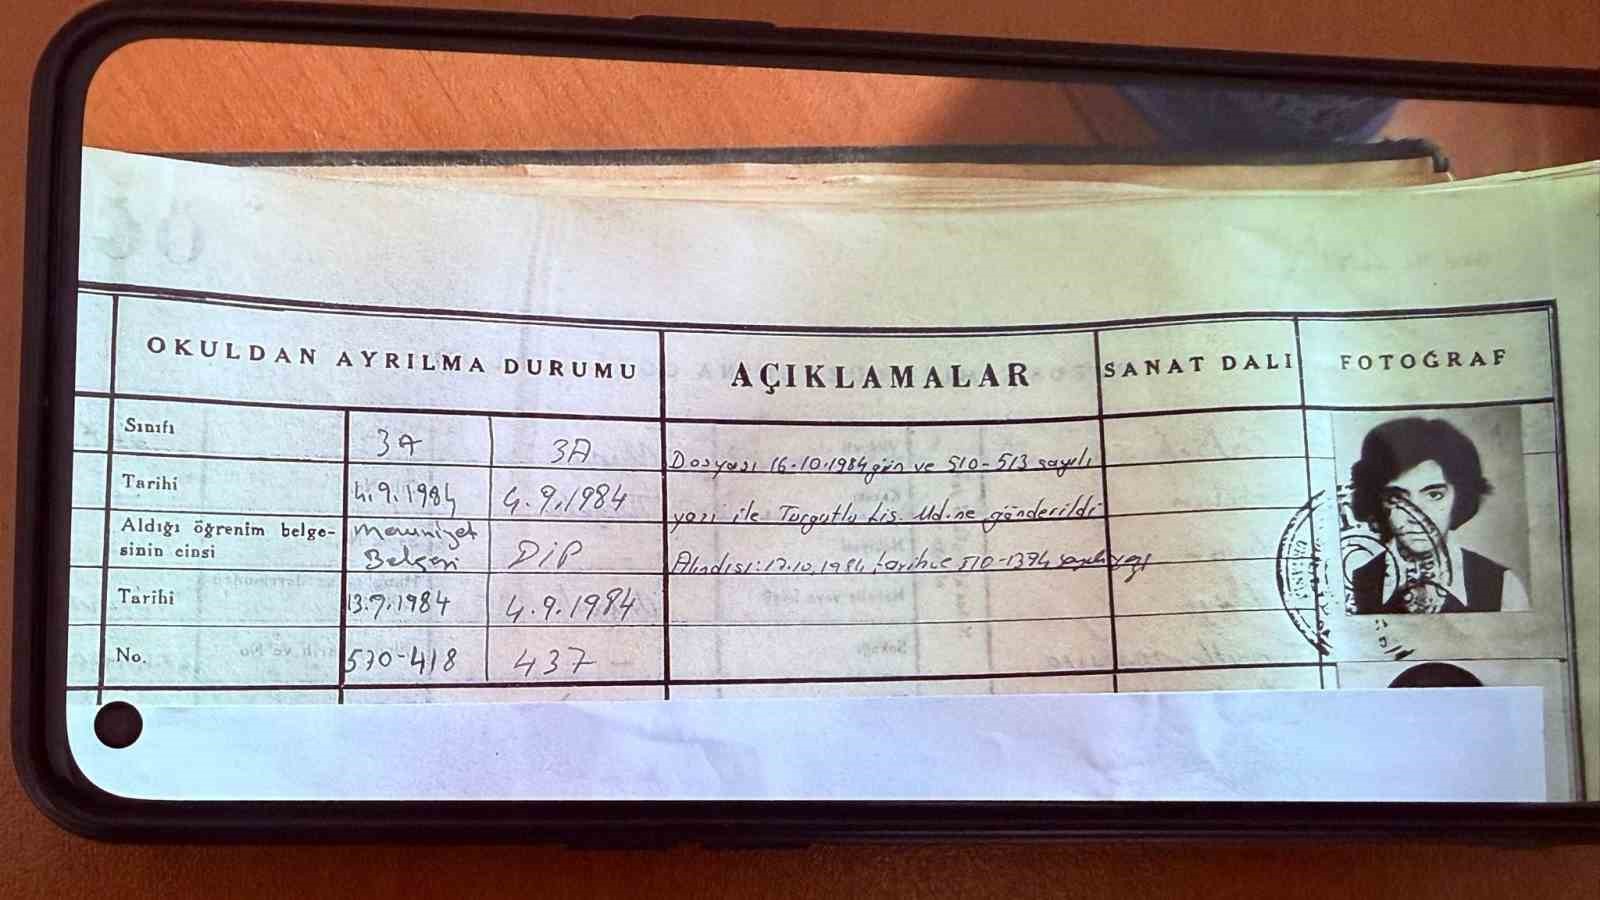 OKULDAN AYRILMA DURUMU AÇIKLAMALAR SANAT DALI FOTOĞRAF
Sınıfı 3A 3A
Dosyası 16.10.1984 gün ve 510-513 sayılı
Tarihi 4.9.1984 4.9.1984
yazı ile Turgutlu Lis. Md.ne gönderildi
Aldığı öğrenim belge-
sinin cinsi Mezuniyet
Belgesi DİP
Alındısı: 17.10.1984 tarih ve 510-1374 sayılı yazı
Tarihi 13.9.1984 4.9.1984
No. 570-418 437